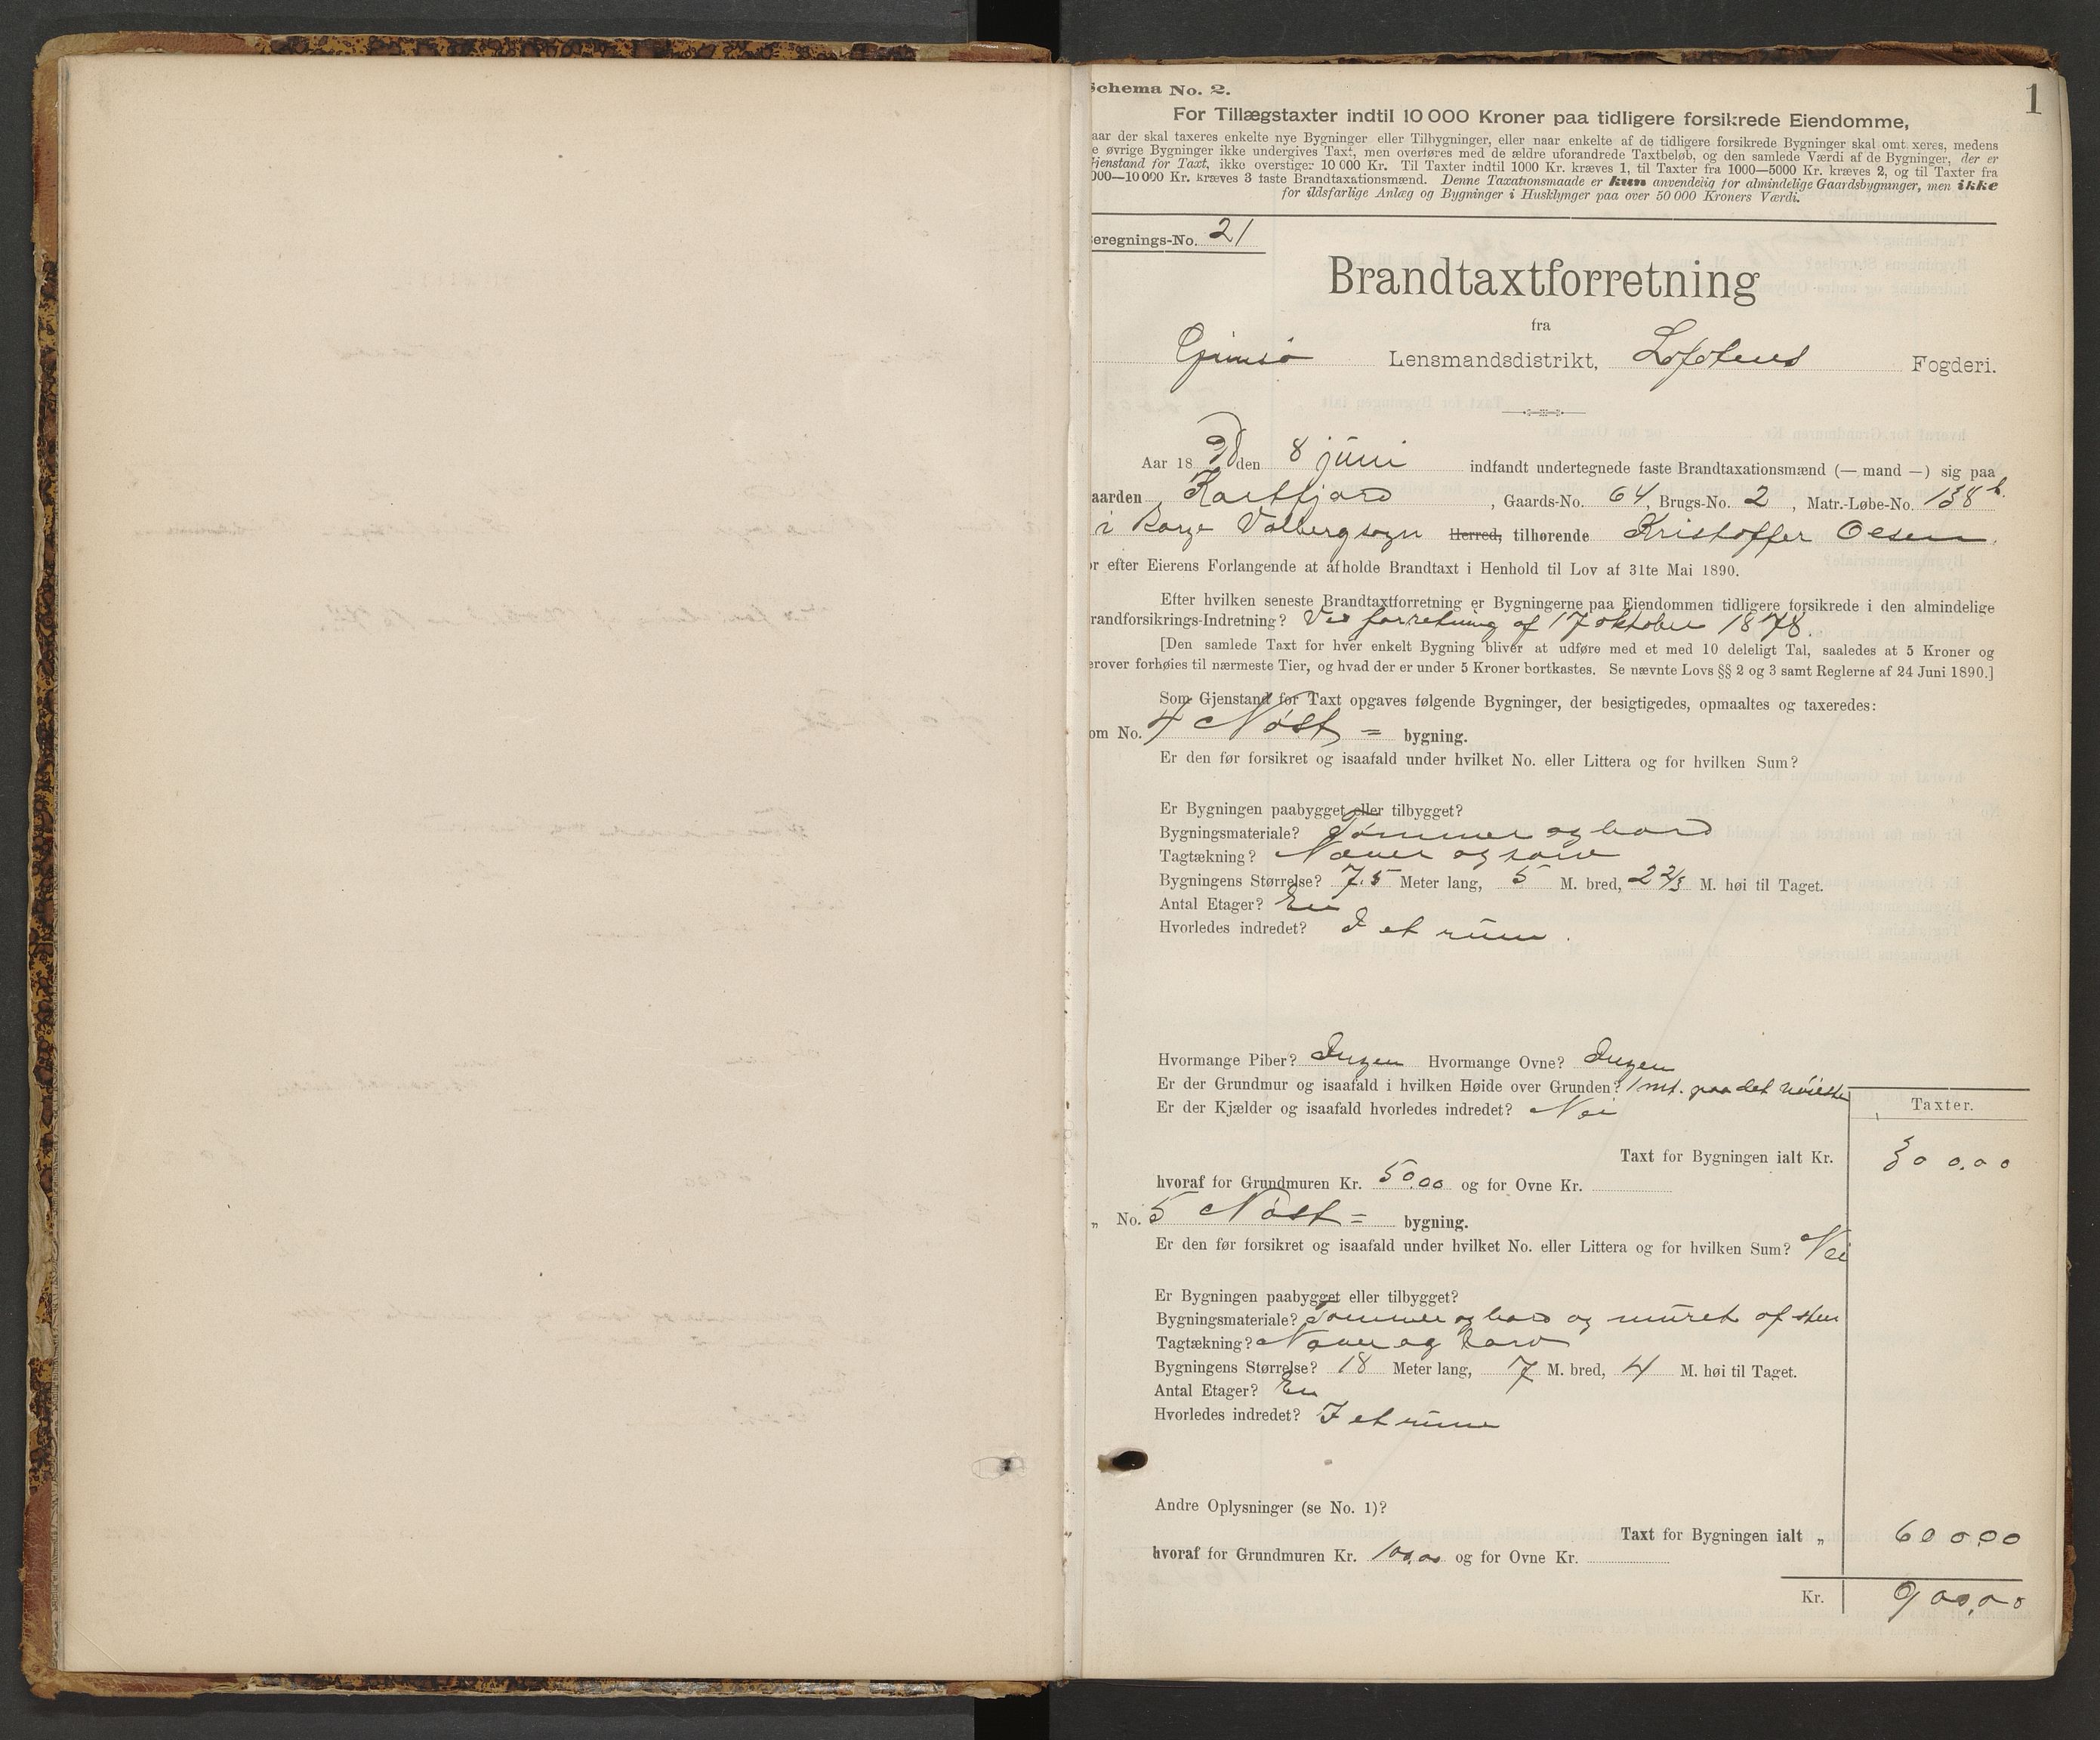 1
Schema No. 2.
For Tillægstaxter indtil 10 000 Kroner paa tidligere forsikrede Eiendomme,
aar der skal taxeres enkelte nye Bygninger eller Tilbygninger, eller naar enkelte af de tidligere forsikrede Bygninger skal omtaxeres, medens
e øvrige Bygninger ikke undergives Taxt, men overføres med de ældre uforandrede Taxtbeløb, og den samlede Værdi af de Bygninger, der er
Gjenstand for Taxt, ikke overstiger 10 000 Kr. Til Taxter indtil 1000 Kr. kræves 1, til Taxter fra 1000—5000 Kr. kræves 2, og til Taxter fra
000—10 000 Kr. kræves 3 faste Brandtaxationsmænd. Denne Taxationsmaade er kun anvendelig for almindelige Gaardsbygninger, men ikke
for ildsfarlige Anlæg og Bygninger i Husklynger paa over 50 000 Kroners Værdi.
Beregnings-No. 21
Brandtaxtforretning
fra
Gimsø Lensmandsdistrikt, Lofotens Fogderi.
Aar 18 98 den 8 juni indfandt undertegnede faste Brandtaxationsmænd (— mand —) sig paa
aarden Kartfjord, Gaards-No. 64, Brugs-No. 2, Matr.-Løbe-No. 138 b.
i Borge Valberg sogn Herred, tilhørende Kristoffer Olsen.
or efter Eierens Forlangende at afholde Brandtaxt i Henhold til Lov af 31te Mai 1890.
Efter hvilken seneste Brandtaxtforretning er Bygningerne paa Eiendommen tidligere forsikrede i den almindelige
randforsikrings-Indretning? Ved forretning af 17 oktober 1878.
[Den samlede Taxt for hver enkelt Bygning bliver at udføre med et med 10 deleligt Tal, saaledes at 5 Kroner og
erover forhøies til nærmeste Tier, og hvad der er under 5 Kroner bortkastes. Se nævnte Lovs §§ 2 og 3 samt Reglerne af 24 Juni 1890.]
Som Gjenstand for Taxt opgaves følgende Bygninger, der besigtigedes, opmaaltes og taxeredes:
om No. 4 Nøst = bygning.
Er den før forsikret og isaafald under hvilket No. eller Littera og for hvilken Sum?
Er Bygningen paabygget eller tilbygget?
Bygningsmateriale? Tømmer og bord
Tagtækning? Næver og torv
Bygningens Størrelse? 7.5 Meter lang, 5 M. bred, 2 2/3 M. høi til Taget.
Antal Etager? En
Hvorledes indredet? I et rum.
Hvormange Piber? Ingen Hvormange Ovne? Ingen
Er der Grundmur og isaafald i hvilken Høide over Grunden? 1 mt. paa det høieste
Er der Kjælder og isaafald hvorledes indredet? Nei
Taxter.
Taxt for Bygningen ialt Kr. 300.00
hvoraf for Grundmuren Kr. 50.00 og for Ovne Kr.
„ No. 5 Nøst = bygning.
Er den før forsikret og isaafald under hvilket No. eller Littera og for hvilken Sum? Nei
Er Bygningen paabygget eller tilbygget?
Bygningsmateriale? Tømmer og bord og muret af sten
Tagtækning? Næver og torv
Bygningens Størrelse? 18 Meter lang, 7 M. bred, 4 M. høi til Taget.
Antal Etager? En
Hvorledes indredet? I et rum
Andre Oplysninger (se No. 1)?
Taxt for Bygningen ialt „ 600.00
hvoraf for Grundmuren Kr. 100.00 og for Ovne Kr.
Kr. 900.00